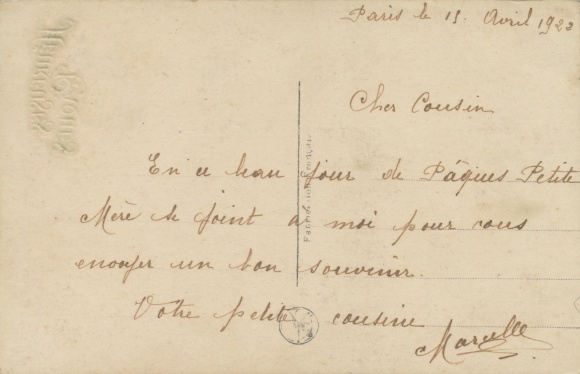 Paris le 15 Avril 1922
Cher Cousin
En ce beau jour de Pâques Petite
Mère se joint à moi pour vous
envoyer un bon souvenir.
Votre petite cousine
Marcelle
Heureuses
Pâques